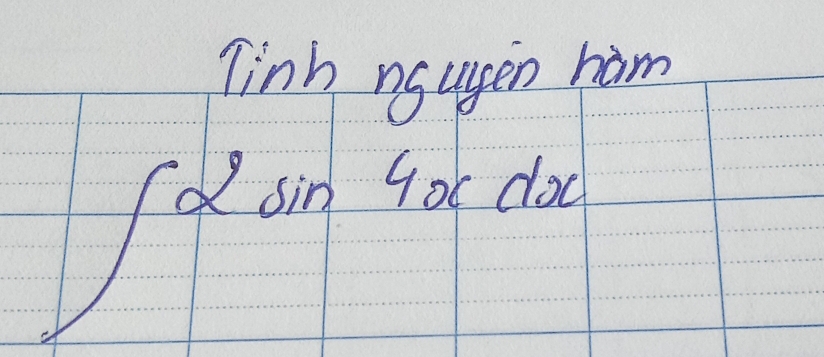 Tính nguyên hàm
∫ 2 sin 4x dx